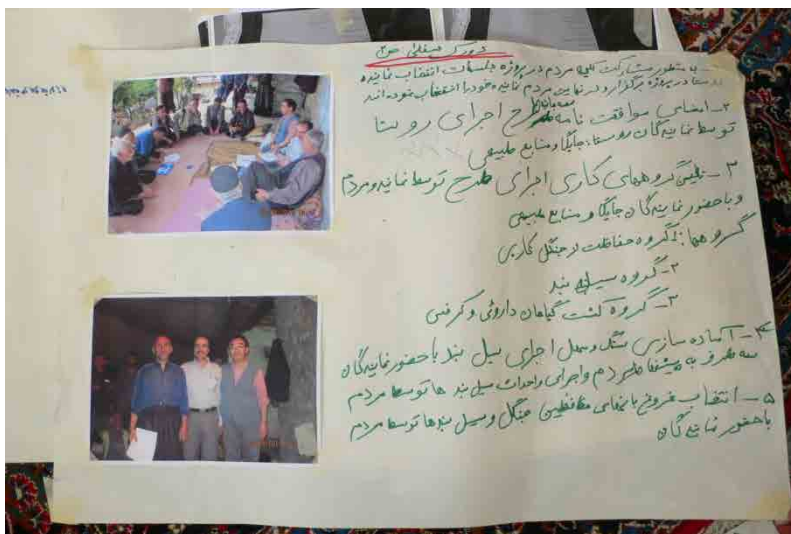 به منظور مشارکت کلیه مردم در پروژه جلسات انتخاب نماینده
روستا در پروژه برگزار و در نهایت مردم نماینده خود را انتخاب نموده اند
۲- امضای موافقت نامه طرح اجرای روستا
توسط نمایندگان روستا، جایکا و منابع طبیعی
۳- گروههای کاری اجرای طرح توسط نماینده و مردم
و با حضور نمایندگان جایکا و منابع طبیعی
گروهها: ۱- گروه حفاظت از جنگل کاری
۲- گروه سیل بند
۳- گروه کشت گیاهان داروئی و کرفس
۴- آماده سازی سنگ و محل اجرای سیل بند با حضور نمایندگان
سه طرف مردم و اجرای واحداث سیل بند ها توسط مردم
۵- انتخاب جنگل و سیل بندها توسط مردم
با حضور نمایندگان